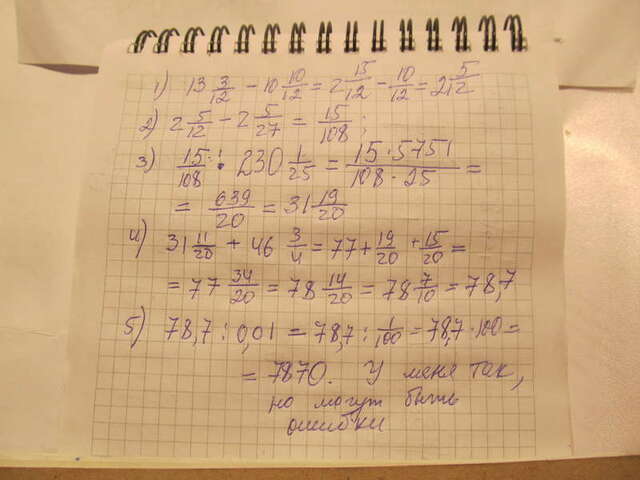 1) 13 3/12 - 10 10/12 = 2 15/12 - 10/12 = 2 5/12
2) 2 5/12 - 2 5/27 = 15/108 ;
3) 15/108 · 230 1/25 = 15·5751/108·25 =
= 639/20 = 31 19/20
4) 31 11/20 + 46 3/4 = 77 + 19/20 + 15/20 =
= 77 34/20 = 78 14/20 = 78 7/10 = 78,7
5) 78,7 : 0,01 = 78,7 : 1/100 = 78,7·100 =
= 7870. У меня так,
но могут быть
ошибки